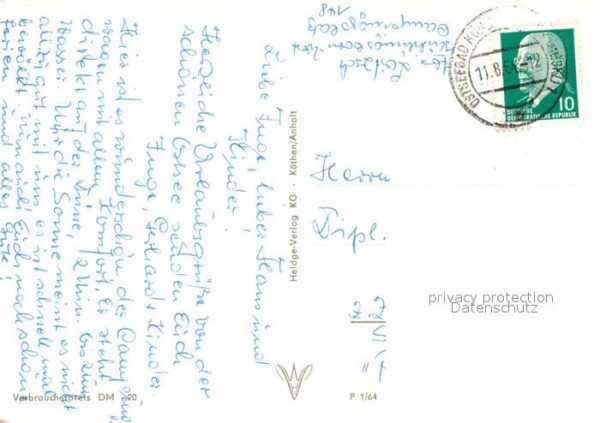 Liebe Inge, lieber Hans und
Kinder!
Herzliche Urlaubsgrüße von der
schönen Ostsee senden Euch
Inge, Gerhard + Kinder.
Hier ist es wunderschön der Camping
wagen mit allem Komfort. Es steht
direkt an der Düne, 2 Min. bis zum
Wasser. Nur die Sonne meint es nicht
allzu gut mit uns, es ist schnell mal
bewölkt. Wir auch Euch noch schöne
Ferien und alles Gute!
Campingplatz
148
Herrn
Dipl.
OSTSEEBAD
11.8.64
10
DEUTSCHE
DEMOKRATISCHE REPUBLIK
Heldge-Verlag KG · Köthen/Anholt
privacy protection
Datenschutz
Verbraucherpreis DM 20
P 1/64